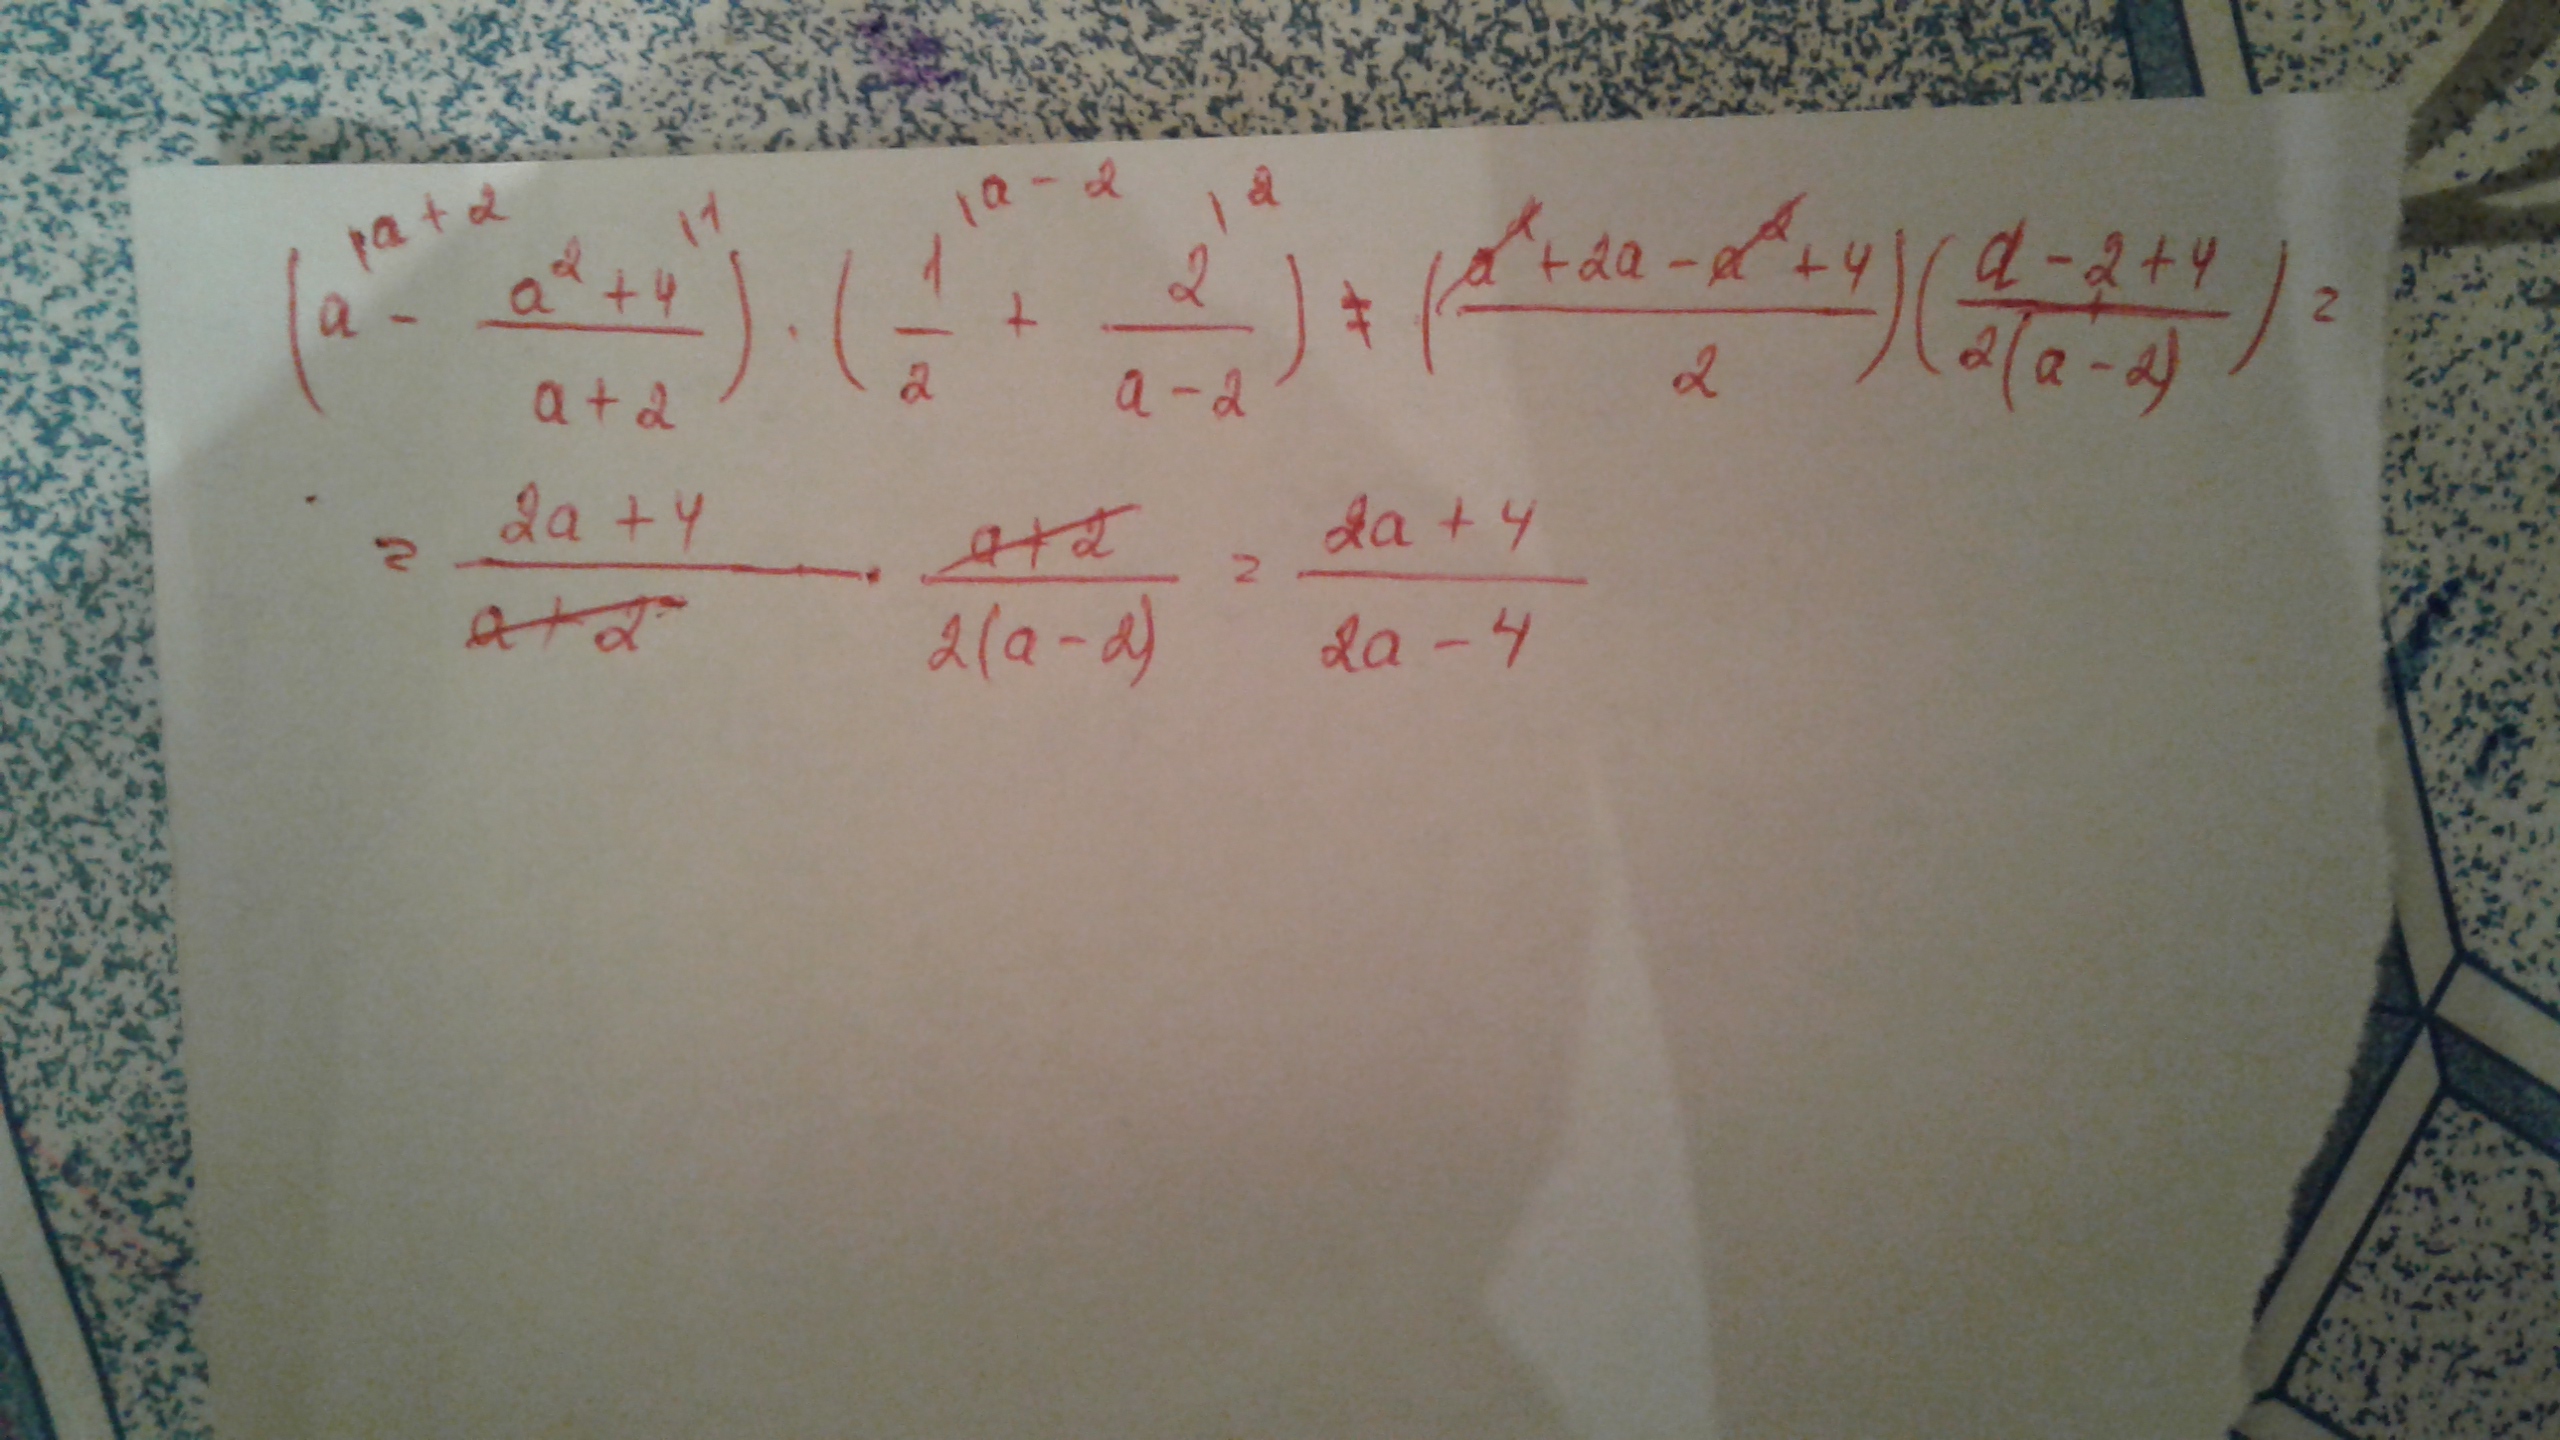 (a^{\a+2} - \frac{a² + 4}{a + 2}^{\1}) · (\frac{1}{2}^{\a - 2} + \frac{2}{a - 2}^{\2}) = (\frac{a² + 2a - a² + 4}{2})(\frac{a - 2 + 4}{2(a - 2)}) =
= \frac{2a + 4}{a + 2} · \frac{a + 2}{2(a - 2)} = \frac{2a + 4}{2a - 4}